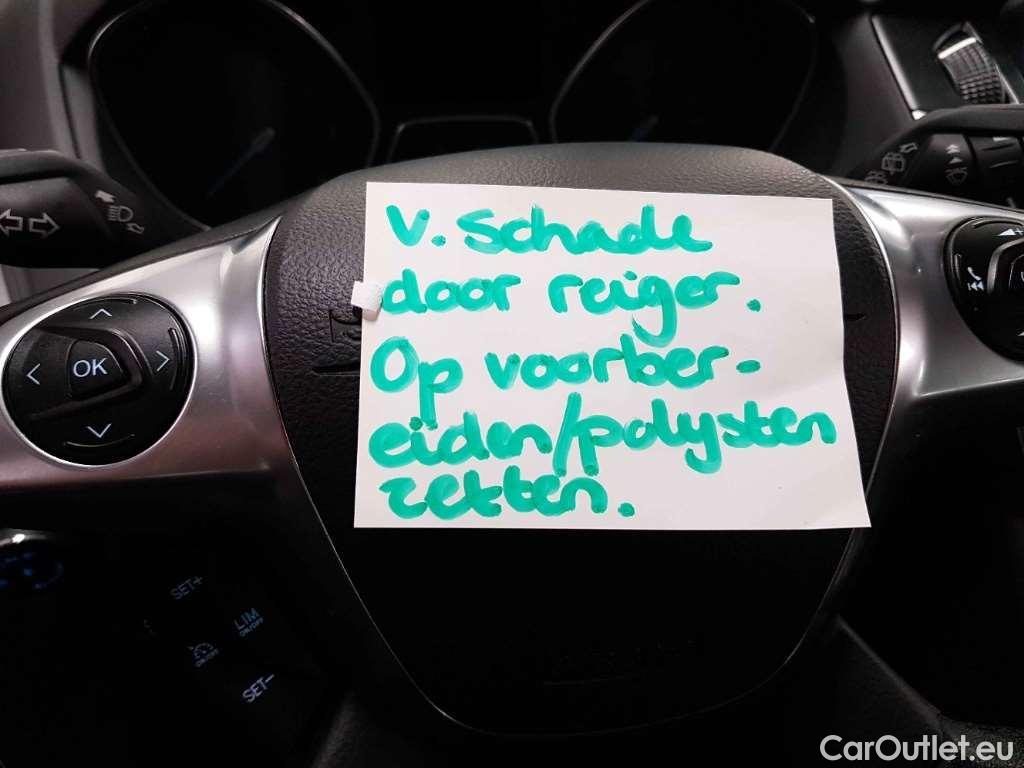 V. Schade
door reiger.
Op voorber-
eiden/polysten
zetten.
OK
SET+
LIM
ON/OFF
ON/OFF
SET-
CarOutlet.eu